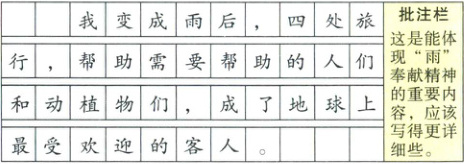 我变成雨后，四处旅
行，帮助需要帮助的人们
和动植物们，成了地球上
最受欢迎的客人。
批注栏
这是能体
现“雨”
奉献精神
的重要内
容，应该
写得更详
细些。